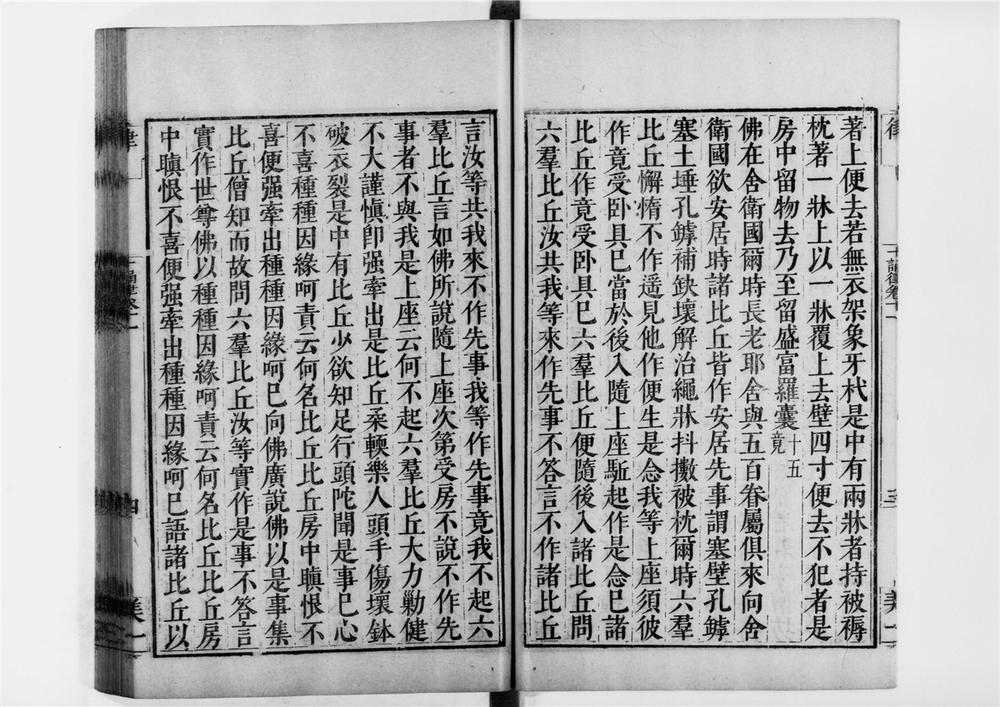 著上便去若無衣架象牙杙是中有兩牀者持被褥
枕著一牀上以一牀覆上去壁四寸便去不犯者是
房中留物去乃至留盛富羅囊十五竟
佛在舍衛國爾時長老耶舍與五百眷屬俱來向舍
衛國欲安居時諸比丘皆作安居先事謂塞壁孔罅
塞土埵孔罅補缺壞解治繩牀抖擻被枕爾時六羣
比丘懈惰不作遥見他作便生是念我等上座須彼
作竟受卧具已當於後入隨上座駈起作是念已諸
比丘作竟受卧具已六羣比丘便隨後入諸比丘問
六羣比丘汝共我等來作先事不答言不作諸比丘
律
十誦律卷十一
三
美一
言汝等共我來不作先事我等作先事竟我不起六
羣比丘言如佛所說隨上座次第受房不說不作先
事者不與我是上座云何不起六羣比丘大力勦健
不大謹愼卽强牽出是比丘柔輭樂人頭手傷壞鉢
破衣裂是中有比丘少欲知足行頭陀聞是事已心
不喜種種因緣呵責云何名比丘比丘房中瞋恨不
喜便强牽出種種因緣呵已向佛廣說佛以是事集
比丘僧知而故問六羣比丘汝等實作是事不答言
實作世尊佛以種種因緣呵責云何名比丘比丘房
中瞋恨不喜便强牽出種種因緣呵已語諸比丘以
律
四
美一